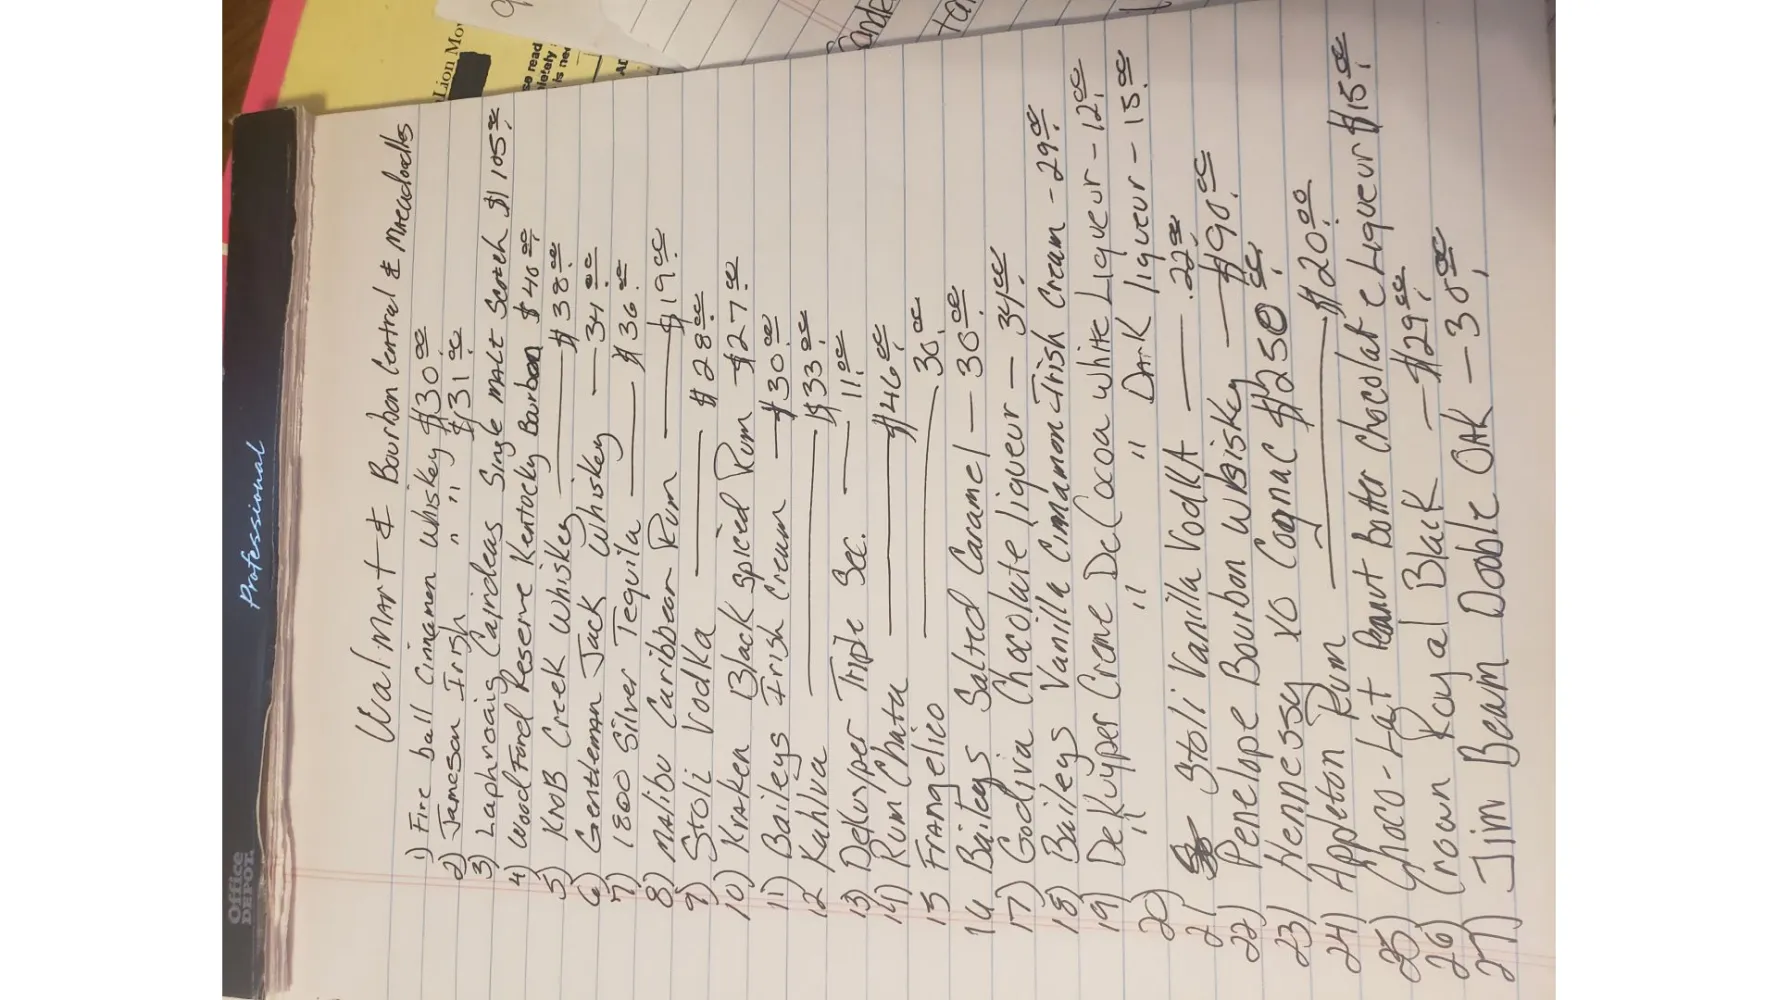 Office
DEPOT
Professional
Lion Mo
se read
pletely
is nee
Walmart & Bourbon Central & Macadoodles
1) Fire ball Cinnamon Whiskey $30.00
2) Jameson Irish " " $31.00
3) Laphroaig Cairdeas Single Malt Scotch $105.00
4) Wood Ford Reserve Kentocky Bourbon $40.00
5) KnoB Creek Whiskey — $38.00
6) Gentleman Jack Whiskey — 34.00
7) 1800 Silver Tequila — $36.00
8) Malibu Caribbean Rum — $19.00
9) Stoli Vodka — $28.00
10) Kraken Black Spiced Rum $27.00
11) Baileys Irish Cream — $30.00
12 Kahlua — $33.00
13) DeKuyper Triple Sec. — 11.00
14) Rum Chata — $46.00
15 Frangelico — 30.00
16 Baileys Salted Caramel — 30.00
17) Godiva Chocolate liqueur — 34.00
18) Baileys Vanilla Cinnamon Irish Cream - 29.00
19) DeKuyper Creme De Cocoa white Liqueur - 12.00
20) " " " " Dark liqueur - 15.00
21 Stoli Vanilla Vodka — 22.00
22) Penelope Bourbon Whiskey — $90.00
23) Hennessy XO Cognac $250.00
24) Appleton Rum — $20.00
25) Choco-Lat Peanut butter Chocolate Liqueur $15.00
26) Crown Royal Black — $29.00
27) Jim Beam Double OAK — 30.00